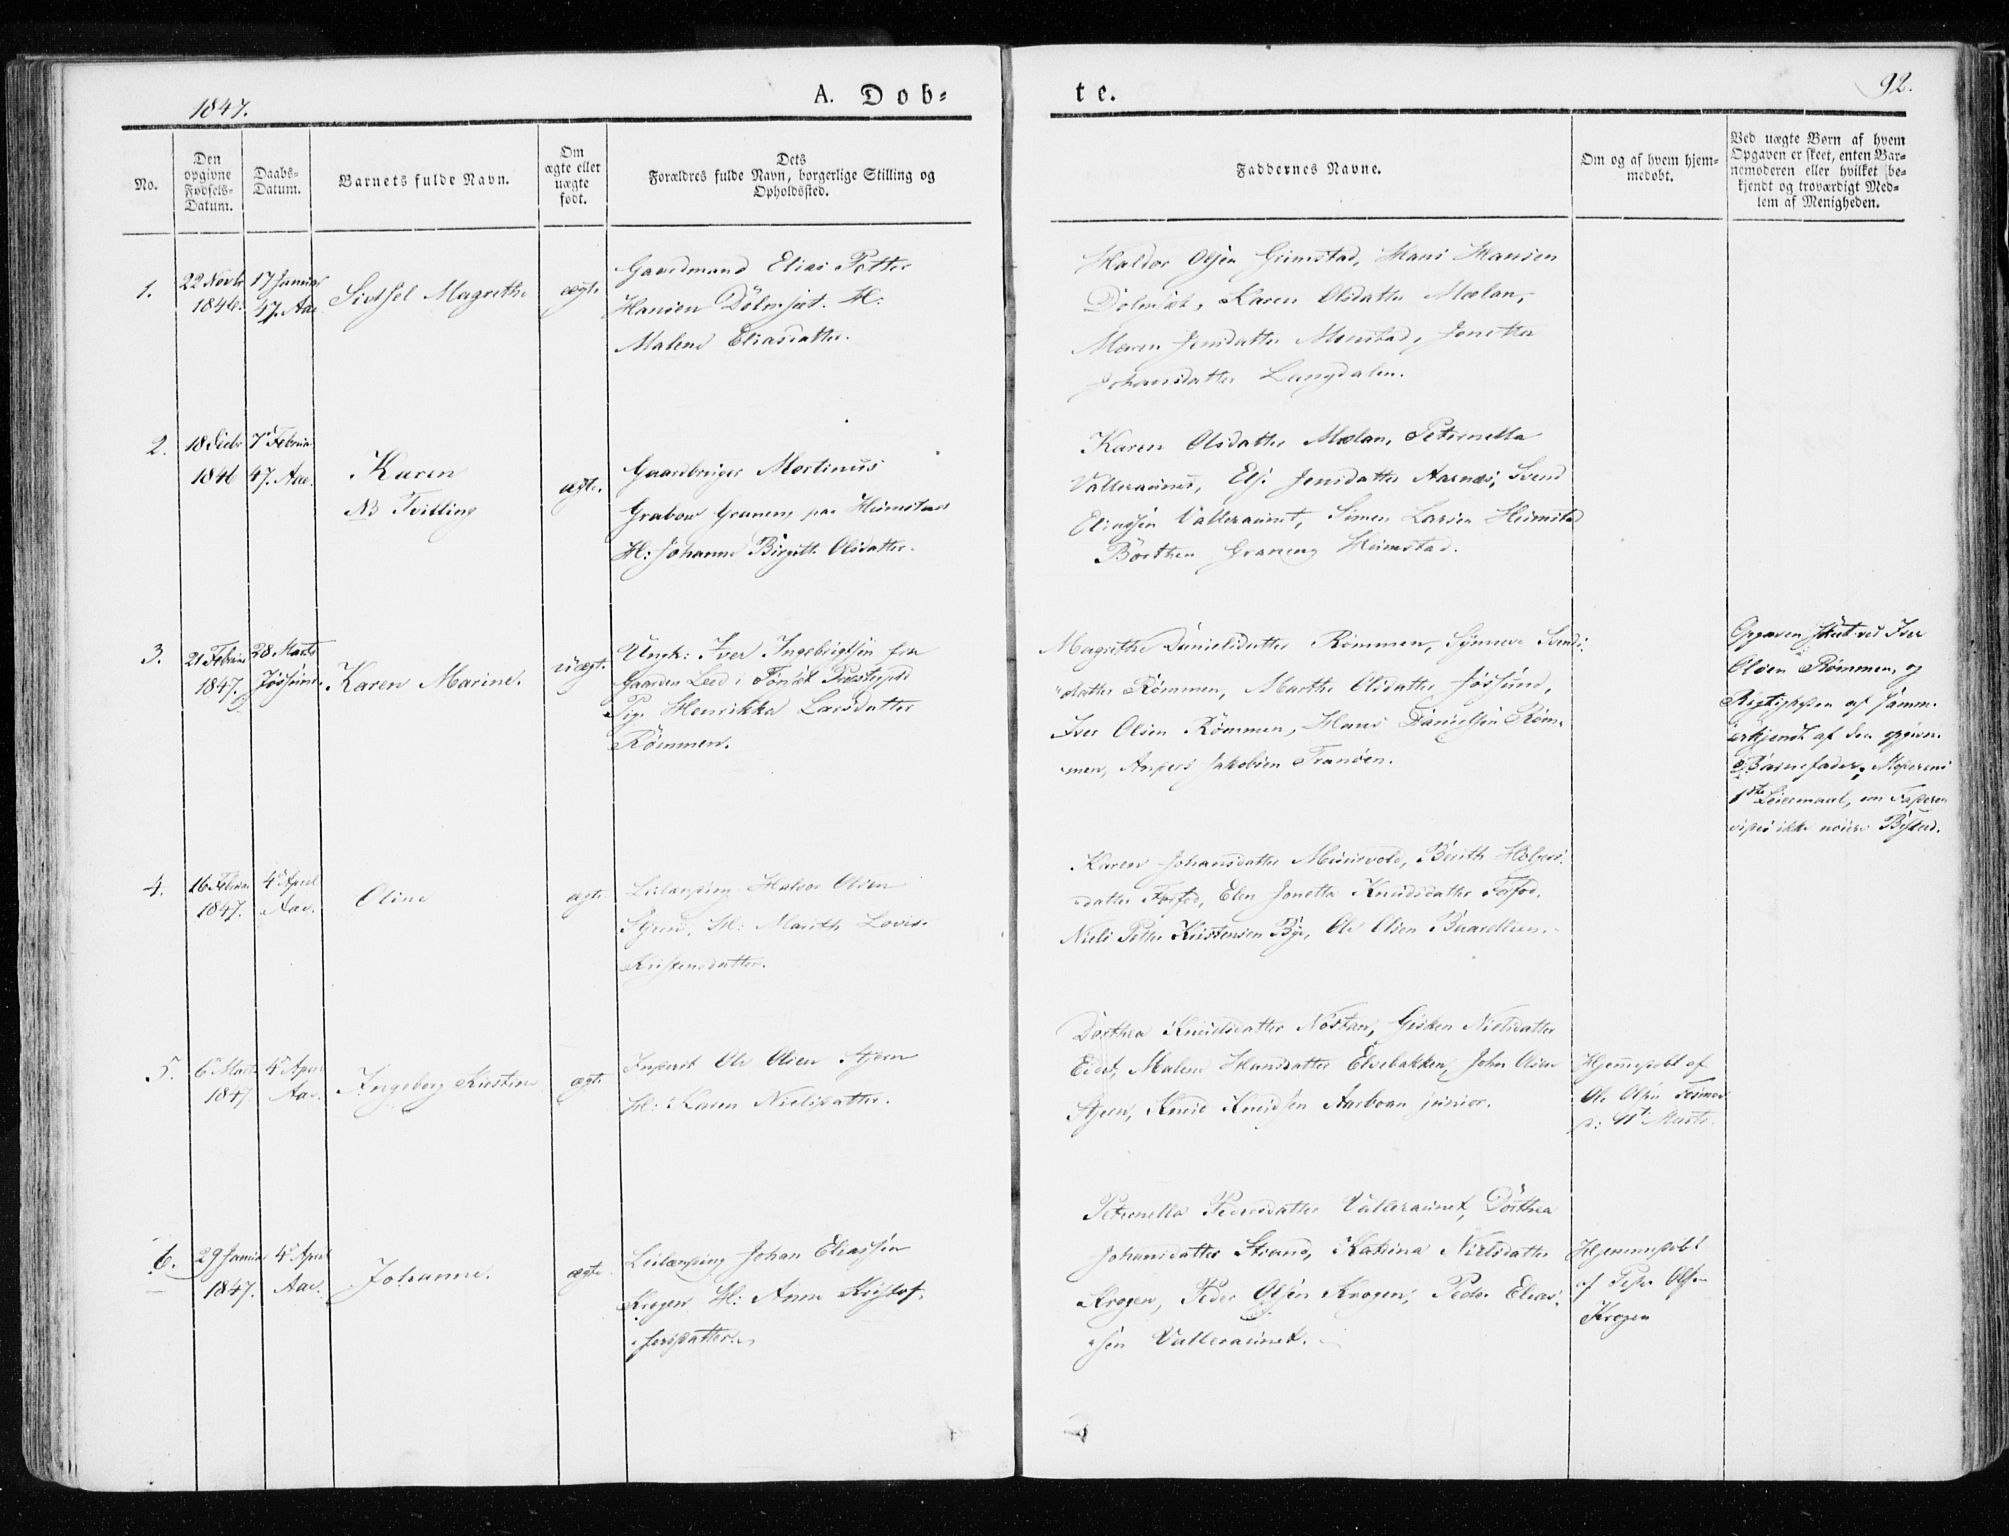 1847.
A. Dob-
te.
92.
No.
Den opgivne Fødsels-Datum.
Daabs-Datum.
Barnets fulde Navn.
Om ægte eller uægte født.
Dets Forældres fulde Navn, borgerlige Stilling og Opholdssted.
Faddernes Navne.
Om og af hvem hjem-medøbt.
Ved uægte Børn af hvem Opgaven er skeet, enten Bar-nemoderen eller hvilket be-kjendt og troværdigt Med-lem af Menigheden.
1.
22 Novbr
1846.
17 Januar
47. Aae
Sidsel Magrethe
ægte
Gaardmand Elias Petter
Hansen Dølmsæt. H:
Malene Eliasdatter.
Haldor Olsen Grimstad, Hans Hansen
Dølmsæt, Karen Olsdatter Mælan,
Maren Jensdatter, Jonetta
Johansdatter Langdalen.
2.
18 Decbr
1846
7 Februar
47. Aae.
Karen
NB Tvilling
ægte.
Gaardbruger Mortinus
Grabow Graneng paa Heimstad
H: Johanna Birgitte Olsdatter.
Karen Olsdatter Mælan, Petronella
Valleraunet, Else Jensdatter Aarnæs, Svend
Eliassen Valleraunet, Simen Larsen Heimstad
Graneng Heimstad.
3.
21 Februar
1847.
28 Marts
Jøssund.
Karen Marine.
uægte.
Ungk: Iver Ingebrigtsen fra
Gaarden i Præstegjeld
Pige Henrikka Larsdatter
Rømmen.
Magrethe Danielsdatter Rømmen, Synneve Svends-
datter Rømmen, Marthe Olsdatter Jøssund,
Iver Olsen Rømmen, Hans Danielsen Røm-
men, Anders Jakobsen Tranøen.
Opgaven skeet ved Iver
Olsen Rømmen, og
Rigtigheden af samme
erkjendt af den opgivne
Barnefader. Moderens
1ste Leiermaal, om Faderen
vides ikke nøiere Besked.
4.
16 Februar
1847.
4 April
Aae.
Oline
ægte
Leilænding Haldor Olsen
Stjern, H: Marith Lovise
Kristensdatter.
Karen Johansdatter, Berith
datter, Elen Jonetta Knudsdatter
Niels Petter Kristensen Bye, Ole Olsen
5.
6 Marts
1847
4 April
Aae.
Ingeborg Kirstine
ægte
Inderst Ole Olsen Stjern
H: Karen Nielsdatter.
Dorthea Knudsdatter, Gisken Nielsdatter
Eidet, Malene Hansdatter Elvebakken, John Olsen
Stjern, Knud Knudsen junior.
Hjemmedøbt af
Ole Olsen
Marts.
6.
29 Januar
1847.
4 April
Aae.
Johanne.
ægte
Leilænding Johan Eliassen
Krogen H: Anne Kristof-
fersdatter.
Petronella Pedersdatter Valleraunet, Dorthea
Johansdatter Strand, Katrina Nielsdatter
Krogen, Peder Olsen Krogen, Peder Elias-
sen Valleraunet.
Hjemmedøbt
af Peder Olsen
Krogen